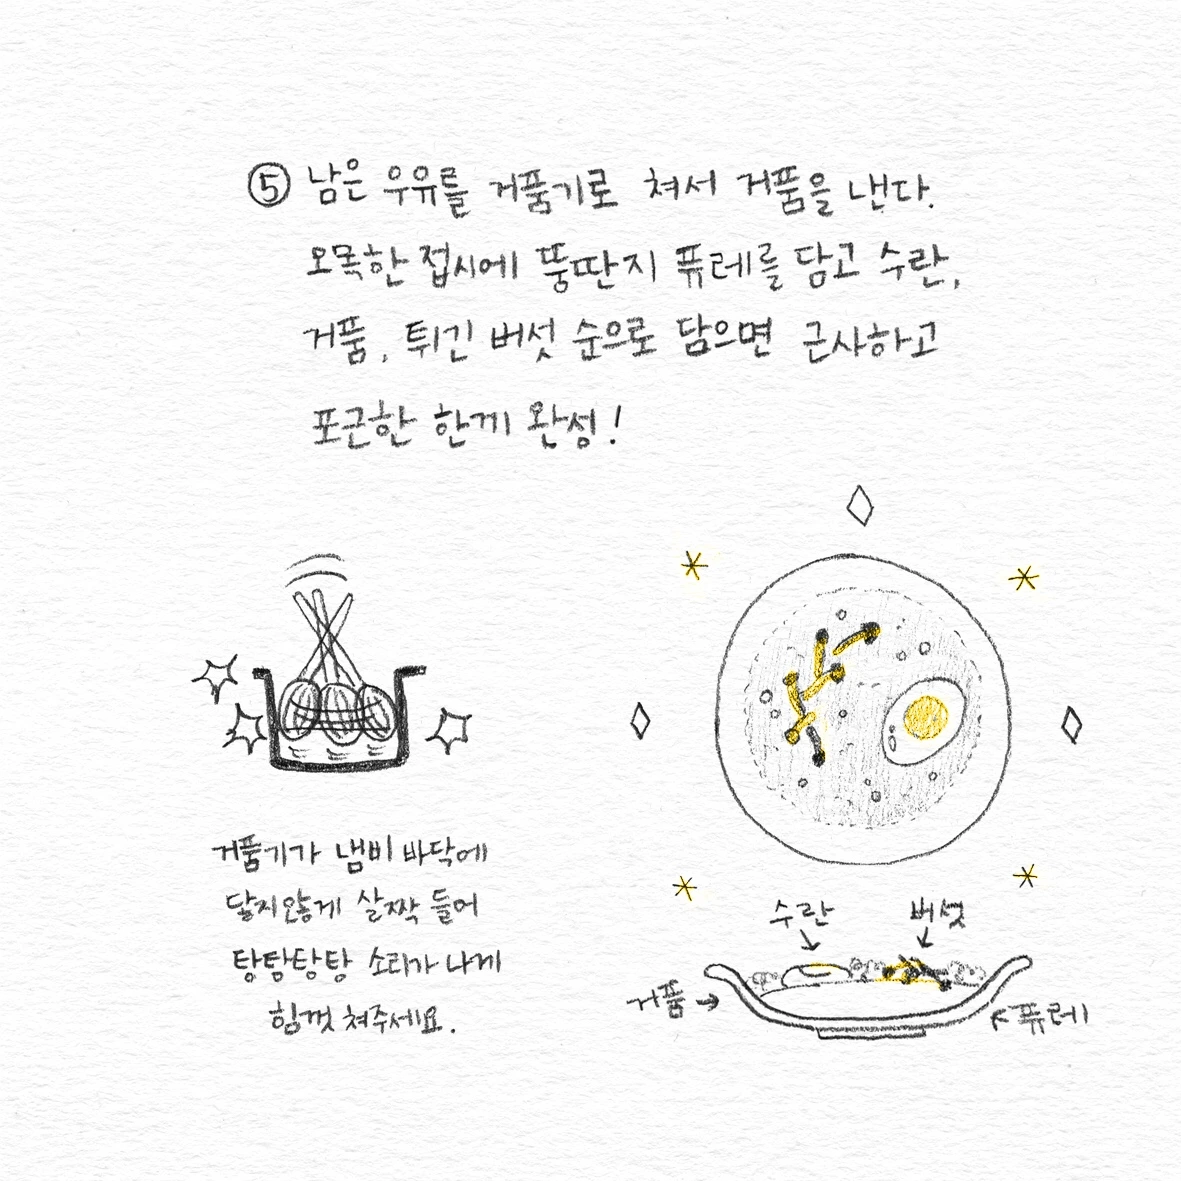 ⑤ 남은 우유를 거품기로 쳐서 거품을 낸다.
오목한 접시에 뚱딴지 퓨레를 담고 수란,
거품, 튀긴 버섯 순으로 담으면 근사하고
포근한 한끼 완성!
거품기가 냄비 바닥에
닿지않게 살짝 들어
탕탕탕탕 소리가 나게
힘껏 쳐주세요.
수란
버섯
거품
퓨레